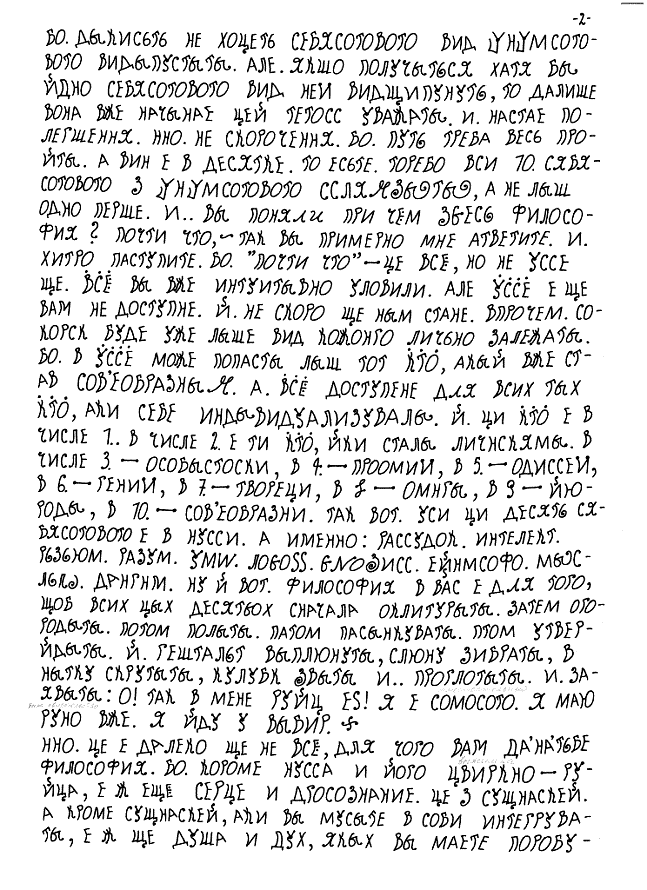 -2-
ВО. ДЫКИСЬТЬ НЕ ХОЦЕТЬ СЕБЯСОТОВОТО ВИД УНУМСОТО-
ВОТО ВИДЫПУСТЫТЫ. АЛЕ. ЯКШО ПОЛУЧЫТЬСЯ ХАТЯ БЫ
ЙДНО СЕБЯСОТОВОТО ВИД НЕИ ВИДЩИПНУТЬ, ТО ДАЛИШЕ
ВОНА ВЖЕ НАЧЫНАЕ ЦЕЙ ТЕТОСС УВАЖАТЫ. И. НАСТАЕ ПО-
ЛЕГШЕННЯ. ННО. НЕ СКОРОЧЕННЯ. БО. ПУТЬ ТРЕБА ВЕСЬ ПРО-
ЙТЫ. А ВИН Е В ДЕСЯТКЕ. ТО ЕСЬТЕ. ТОРЕБО ВСИ 10. СЯБЯ-
СОТОВОТО З УНУМСОТОВОТО А НЕ ЛЫШ
ОДНО ПЕРШЕ. И.. ВЫ ПОНЯЛИ ПРИ ЧЕМ ЗЬЕСЬ ФИЛОСО-
ФИЯ? ПОЧТИ ЧТО,~ТАК ВЫ ПРИМЕРНО МНЕ АТВЕТИТЕ. И.
ХИТРО ПАСТУПИТЕ. БО. "ПОЧТИ ЧТО"—ЦЕ ВСЁ, НО НЕ УССЕ
ЩЕ. ВСЁ ВЫ ВЖЕ ИНТУИТЫВНО УЛОВИЛИ. АЛЕ УССЁ Е ЩЕ
ВАМ НЕ ДОСТУПНЕ. Й. НЕ СКОРО ЩЕ НЫМ СТАНЕ. ВПРОЧЕМ. СО-
КОРСК БУДЕ УЖЕ ЛЫШЕ ВИД КОЖОНГО ЛИЧЬНО ЗАЛЕЖАТЫ.
БО. В УССЁ МОЖЕ ПОПАСТЫ ЛЫШ ТОТ КТО, АКЫЙ ВЖЕ СТ-
АВ СОВ'ЕОБРАЗНЫМ. А. ВСЁ ДОСТУПЕНЕ ДЛЯ ВСИХ ТЫХ
КТО, АКИ СЕБЕ ИНДЫВИДУАЛИЗУВАЛЫ. Й. ЦИ КТО Е В
ЧИСЛЕ 1.. В ЧИСЛЕ 2. Е ТИ КТО, ЙКИ СТАЛЫ ЛИЧНСКЯМЫ. В
ЧИСЛЕ 3. — ОСОБЫСТОСКИ, В 4.— ПРООМИИ, В 5.—ОДИССЕИ,
В 6.—ГЕНИИ, В 7.—ТВОРЕЦИ, В 8 — ОМНГЫ, В 9— ЙЮ-
РОДЫ, В 10.— СОВ'ЕОБРАЗНИ. ТАК ВОТ. УСИ ЦИ ДЕСЯТЬ СЯ-
БЯСОТОВОТО Е В НУССИ. А ИМЕННО: РАССУДОК. ИНТЕЛЕКТ.
РЬЗЬЮМ. РАЗУМ. УМW. ЛОGОSS. ЕЙНМСОФО. МЫС-
НУ Й ВОТ. ФИЛОСОФИЯ В ВАС Е ДЛЯ ТОГО,
ЩОБ ВСИХ ЦЫХ ДЕСЯТЬОХ СНАЧАЛА ОКЛИТУРЫТЫ. ЗАТЕМ ОГО-
РОДЫТЫ. ПОТОМ ПОЛЫТЫ. ПАТОМ ПАСЫНКУВАТЫ. ПТОМ УТВЕР-
ЙДЫТЫ. Й. ГЕШТАЛЬТ ВЫПЛЮНУТЫ, СЛЮНУ ЗИБРАТЫ, В
НЫТКУ СКРУТЫТЫ, КУЛУБК ЗВЫТЫ И.. ПРОГЛОТЫТЫ. И. ЗА-
ЯВЫТЫ: О! ТАК В МЕНЕ РУЙЦ ES! Я Е СОМОСОТО. Я МАЮ
РУНО ВЖЕ. Я ЙДУ У ВЫВИР.
ННО. ЦЕ Е ДАЛЕКО ЩЕ НЕ ВСЁ, ДЛЯ ЧОГО ВАМ ДА'НА'ТЬВЕ
ФИЛОСОФИЯ. БО. КОРОМЕ НУССА И ЙОГО ЦВИРКНО—РУ-
ЙЦА, Е Ж ЕЩЕ СЕРЦЕ И ДГОСОЗНАНИЕ. ЦЕ З СУЩНАСКЕЙ.
А КРОМЕ СУЩНАСКЕЙ, АКИ ВЫ МУСЫТЕ В СОБИ ИНТЕГРУВА-
ТЫ, Е Ж ЩЕ ДУША И ДУХ, ЯКЫХ ВЫ МАЕТЕ ПОРОБУ-